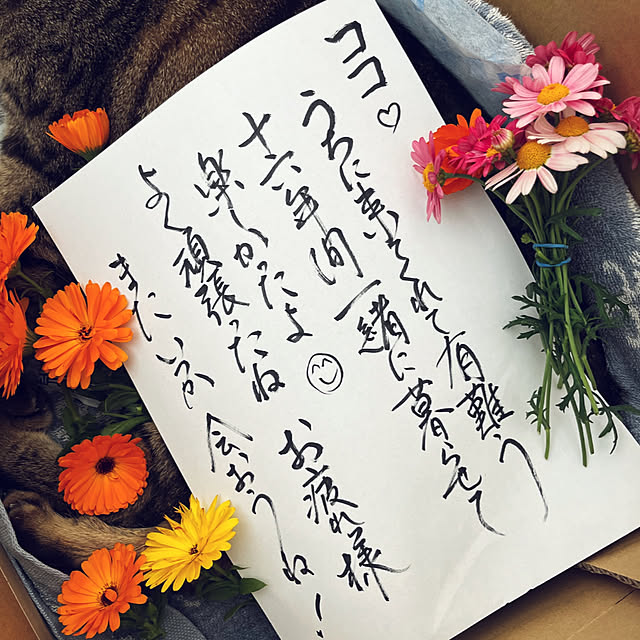 ココ♡
うちに来てくれて有難う
十六年間一緒に暮らせて
楽しかったよ
よく頑張ったね お疲れ様
またいつか会おうね！